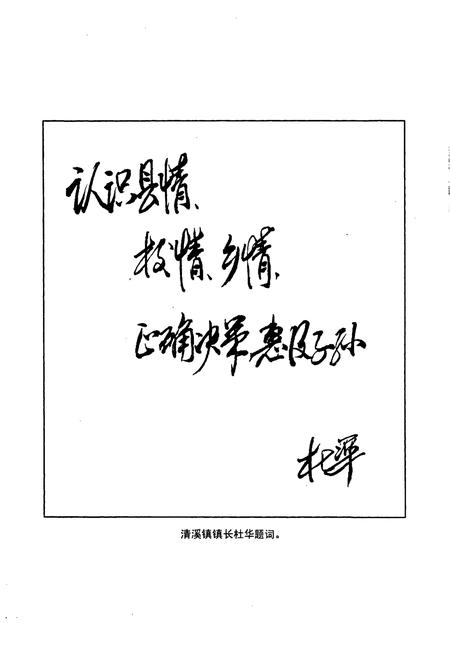 认识县情、
校情、乡情、
正确决策惠及子孙
杜华
清溪镇镇长杜华题词。